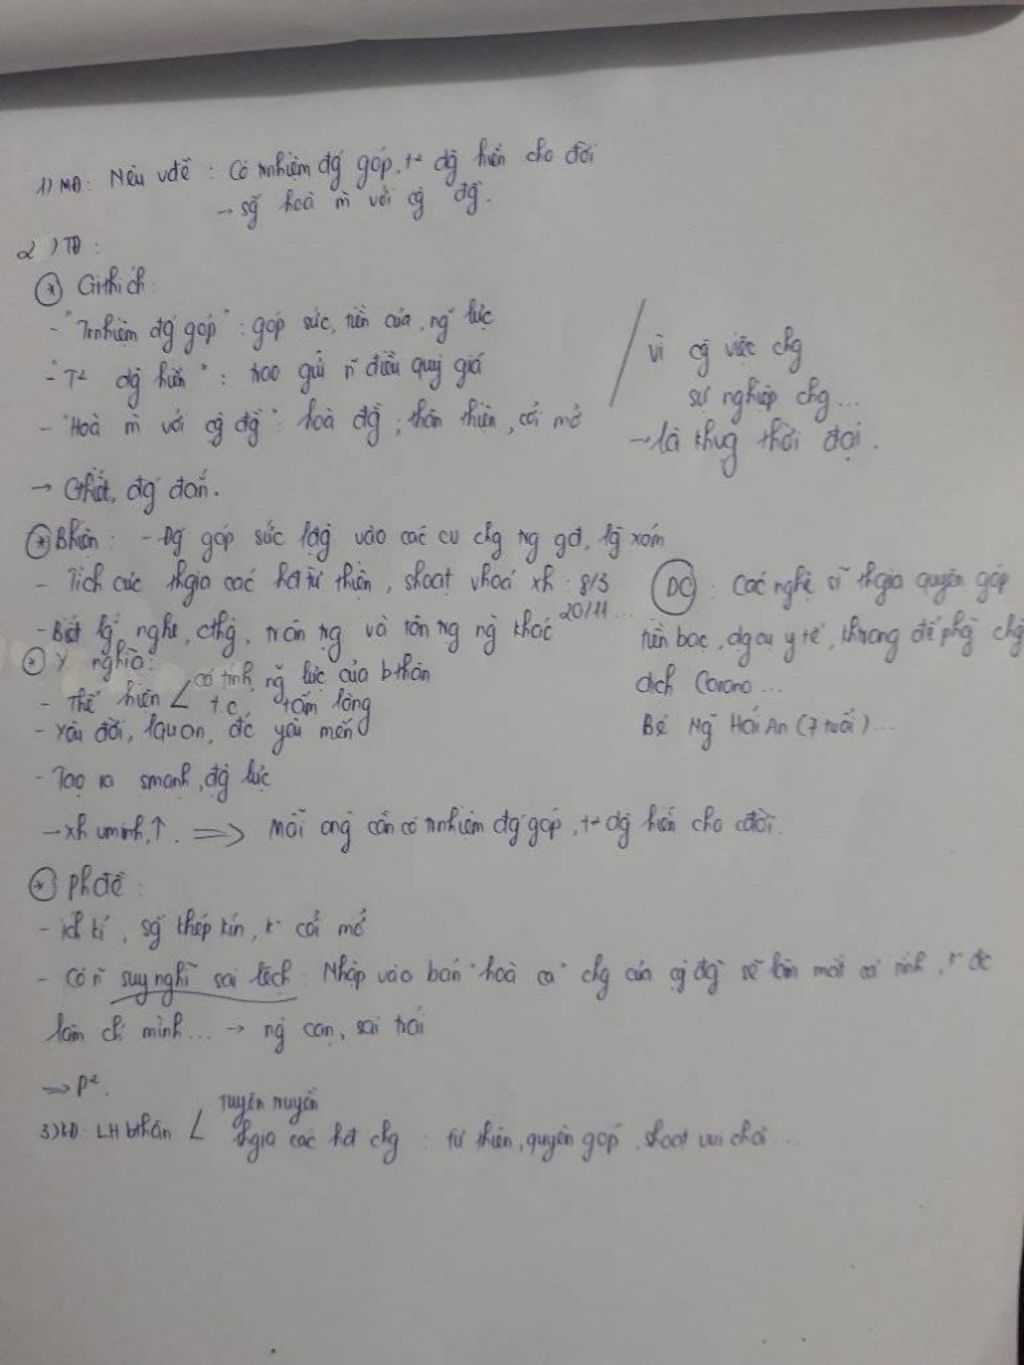 1) MĐ: Nêu vđề : Có trnhiệm đg góp, t² dg hiến cho đời
→ sg hoà m với cg đg.
2) TĐ :
* Githích:
- "Trnhiệm đg góp" : góp sức, tiền của, ng lực
- "T² dg hiến" : trao gửi n điều quý giá
- "Hoà m với cg đg" : hoà đg ; thân thiện, cởi mở
/ vì cg việc chg
sự nghiệp chg...
→ là thời đại.
→ đg đắn.
* Bhiện : - Đg góp sức lđg vào các cv chg trg gđ, lg xóm
- Tích cực thgia các hđ từ thiện, shoạt vhoá xh : 8/3
20/11...
- Biết lg nghe, cthg, trân trg và tôn trg ng khác
DC : Các nghệ sĩ thgia quyên góp
tiền bạc, dgcụ y tế, khtrang để phg chg
dịch Corona...
Bé Ng Hải An (7 tuổi)...
* Ý nghĩa:
- Thể hiện < cá tính, ng lực của bthân
t.c, tấm lòng
- Yêu đời, lạquan, đc yêu mến
- Tạo ra smạnh, đg lực
→ xh vminh, ↑. ⇒ Mỗi cng cần có trnhiệm đg góp, t² dg hiến cho cđời.
* Phđề :
- ích kỉ, sg khép kín, k cởi mở
- Có n suy nghĩ sai lệch : Nhập vào bản "hoà ca" chg của cg đg sẽ làm mất cá tính, k đc
làm chí mình... → ng cạn, sai trái
⇒ P².
3) KĐ: LH bthân < Tuyên truyền
thgia các hđ chg : từ thiện, quyên góp, shoạt vui chơi...